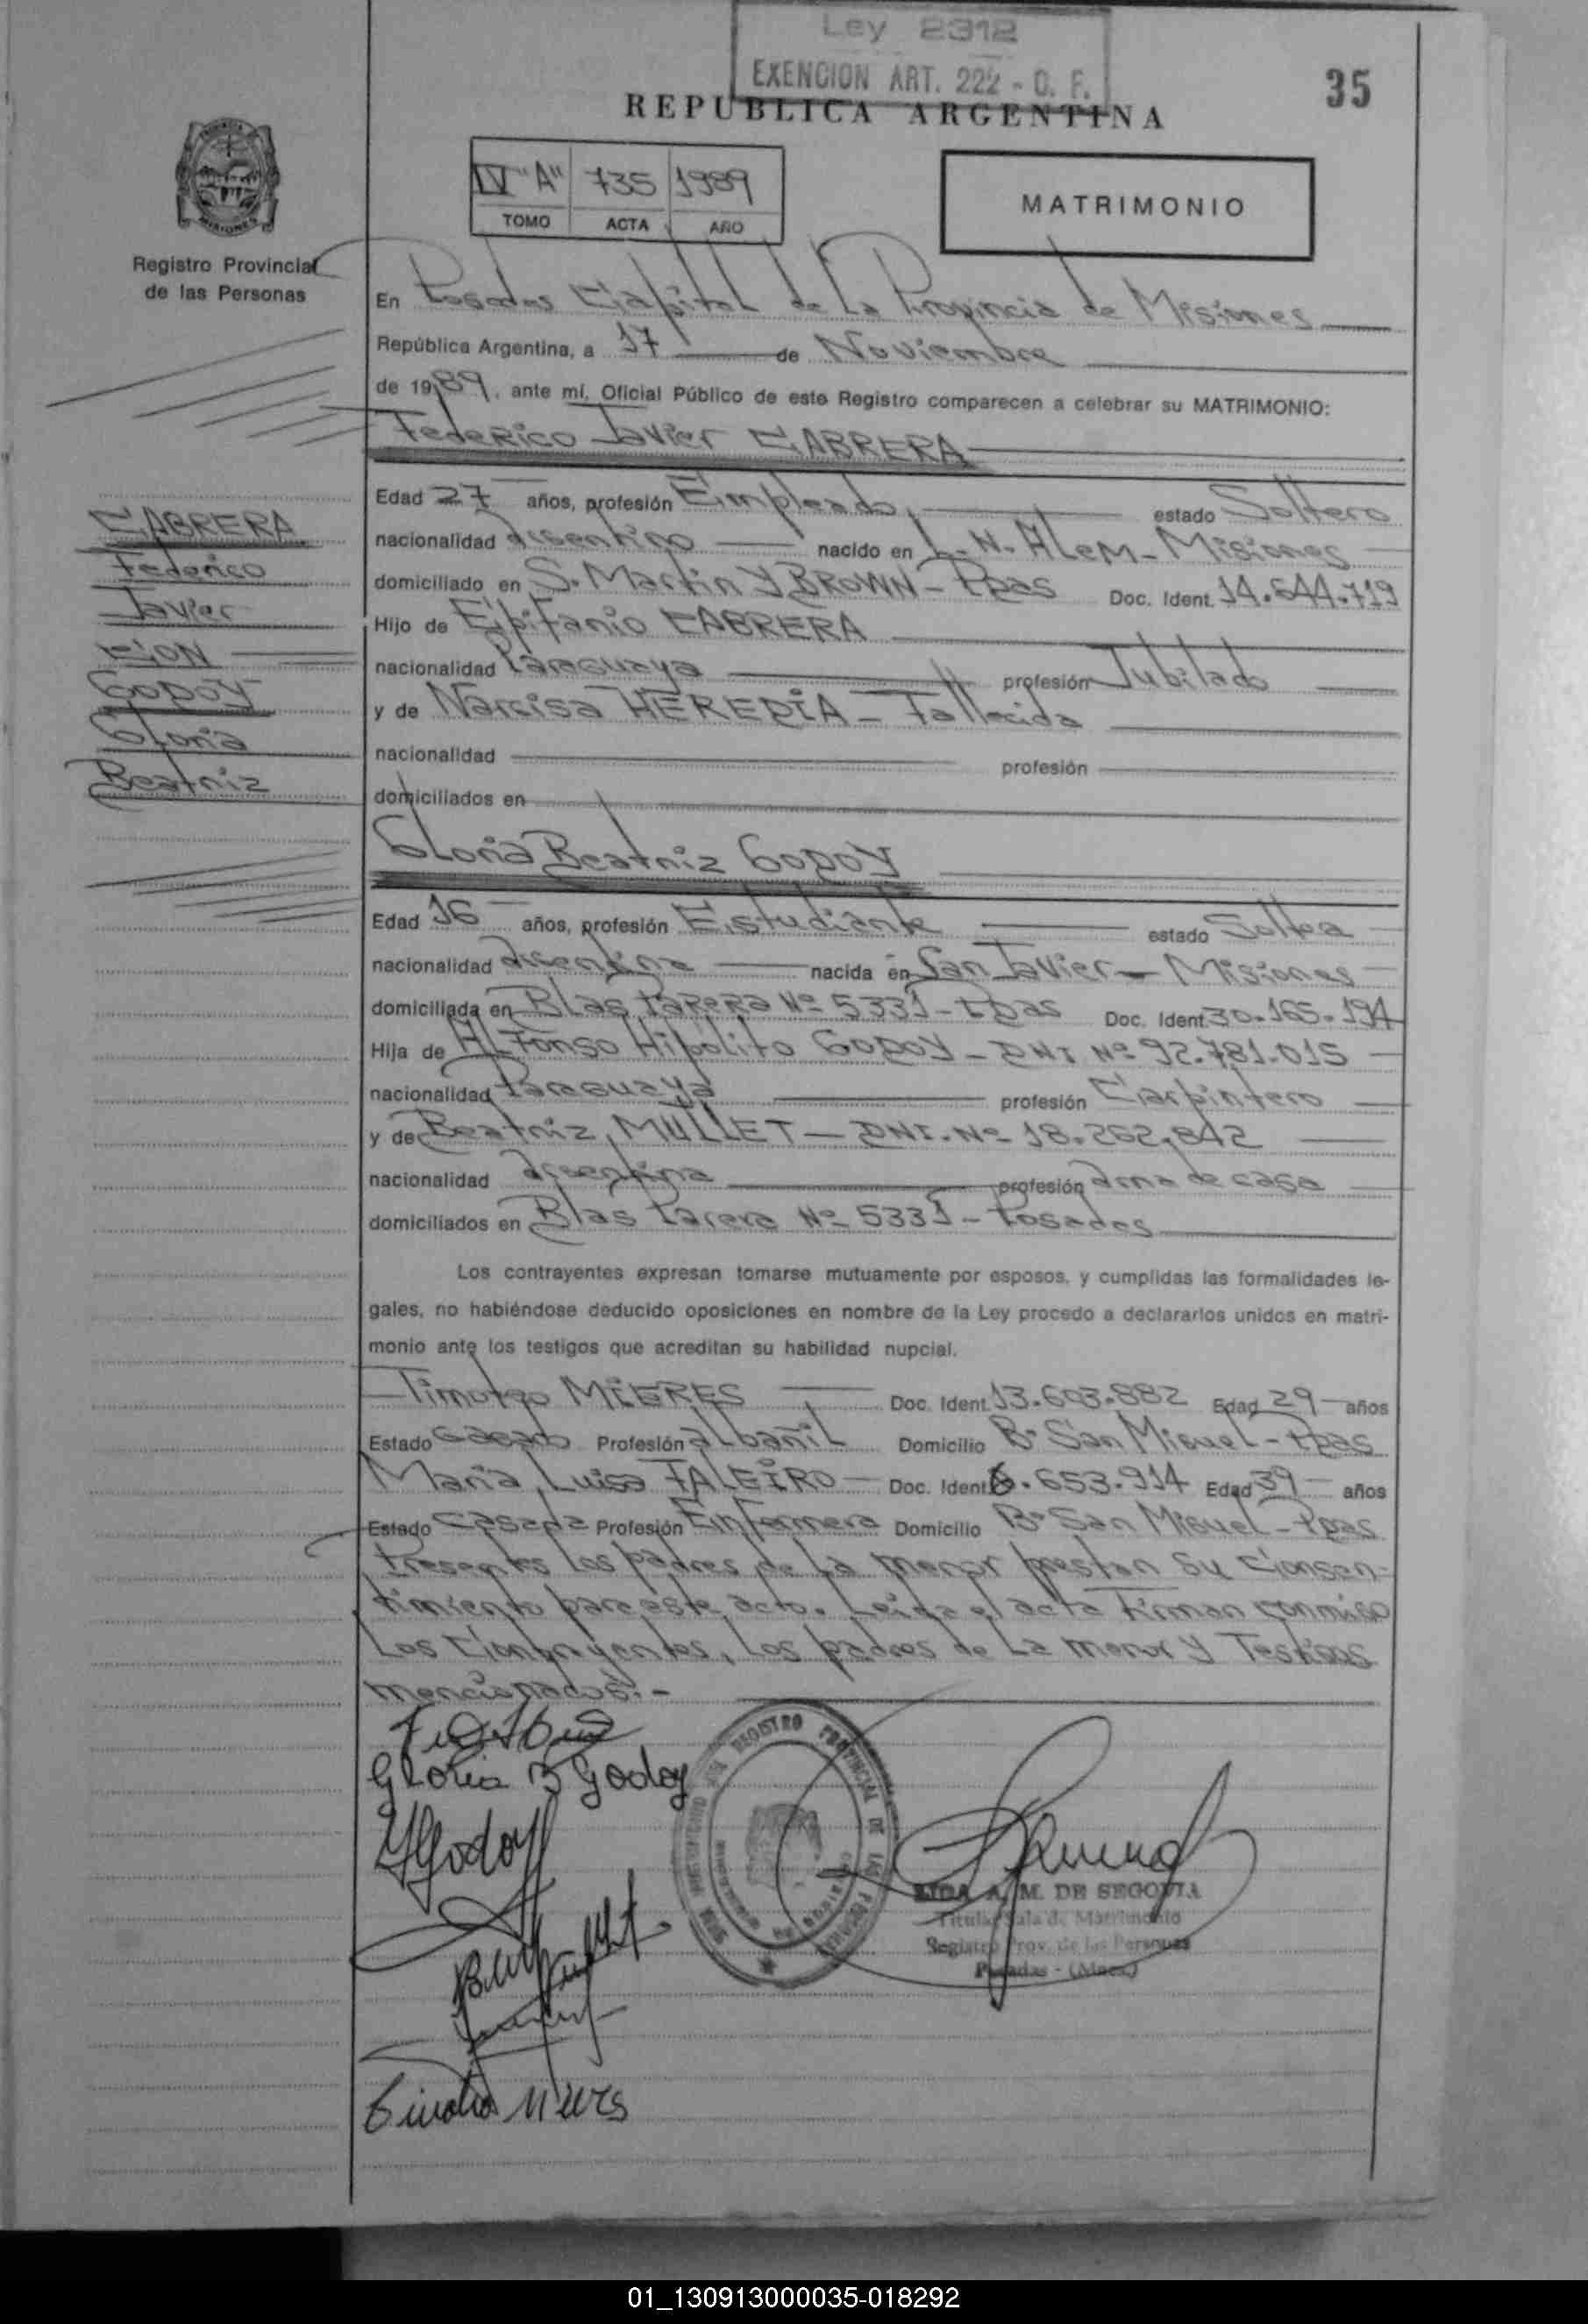 Ley 2312
EXENCION ART. 222 - C. F.
35
REPUBLICA ARGENTINA
IV "A" 735 1989
TOMO ACTA AÑO
MATRIMONIO
Registro Provincial
de las Personas
En Posadas Capital de La Provincia de Misiones
República Argentina, a 17 de Noviembre
de 1989, ante mí, Oficial Público de este Registro comparecen a celebrar su MATRIMONIO:
Federico Javier CABRERA
CABRERA
Federico
Javier
CON
GODOY
Gloria
Beatriz
Edad 27 años, profesión Empleado, estado Soltero
nacionalidad argentino nacido en L.N. ALEM - Misiones
domiciliado en S. Martin Y BROWN - Pdas Doc. Ident. 14.644.719
Hijo de Epifanio CABRERA
nacionalidad Paraguaya profesión Jubilado
y de Narcisa HEREDIA - Fallecida
nacionalidad profesión
domiciliados en
Gloria Beatriz GODOY
Edad 16 años, profesión Estudiante estado Soltera
nacionalidad argentina nacida en San Javier - Misiones
domiciliada en Blas PARERA Nº 5331 - Pdas Doc. Ident. 30.165.194
Hija de ALFONSO Hipolito GODOY - DNI Nº 92.781.015
nacionalidad Paraguaya profesión Carpintero
y de Beatriz MULLET - DNI. Nº 18.262.842
nacionalidad argentina profesión ama de casa
domiciliados en Blas Parera Nº 5331 - Posadas
Los contrayentes expresan tomarse mutuamente por esposos, y cumplidas las formalidades le-
gales, no habiéndose deducido oposiciones en nombre de la Ley procedo a declararlos unidos en matri-
monio ante los testigos que acreditan su habilidad nupcial.
Timoteo MIERES Doc. Ident. 13.603.882 Edad 29 años
Estado Casado Profesión albañil Domicilio Bº San Miguel - Pdas
Maria Luisa FALEIRO - Doc. Ident. 6.653.914 Edad 39 años
Estado Casada Profesión Enfermera Domicilio Bº San Miguel - Pdas
Presentes los padres de la menor prestan su consen-
timiento para este acto. Leida el acta Firman conmigo
Los Contrayentes, los padres de La menor y Testigos
mencionados.-
Gloria B Godoy
Godoy
REGISTRO PROVINCIAL DE LAS PERSONAS
LIDA A. M. DE SEGOVIA
Titular Sala de Matrimonio
Registro Prov. de las Personas
Posadas - (Mnes.)
01_130913000035-018292